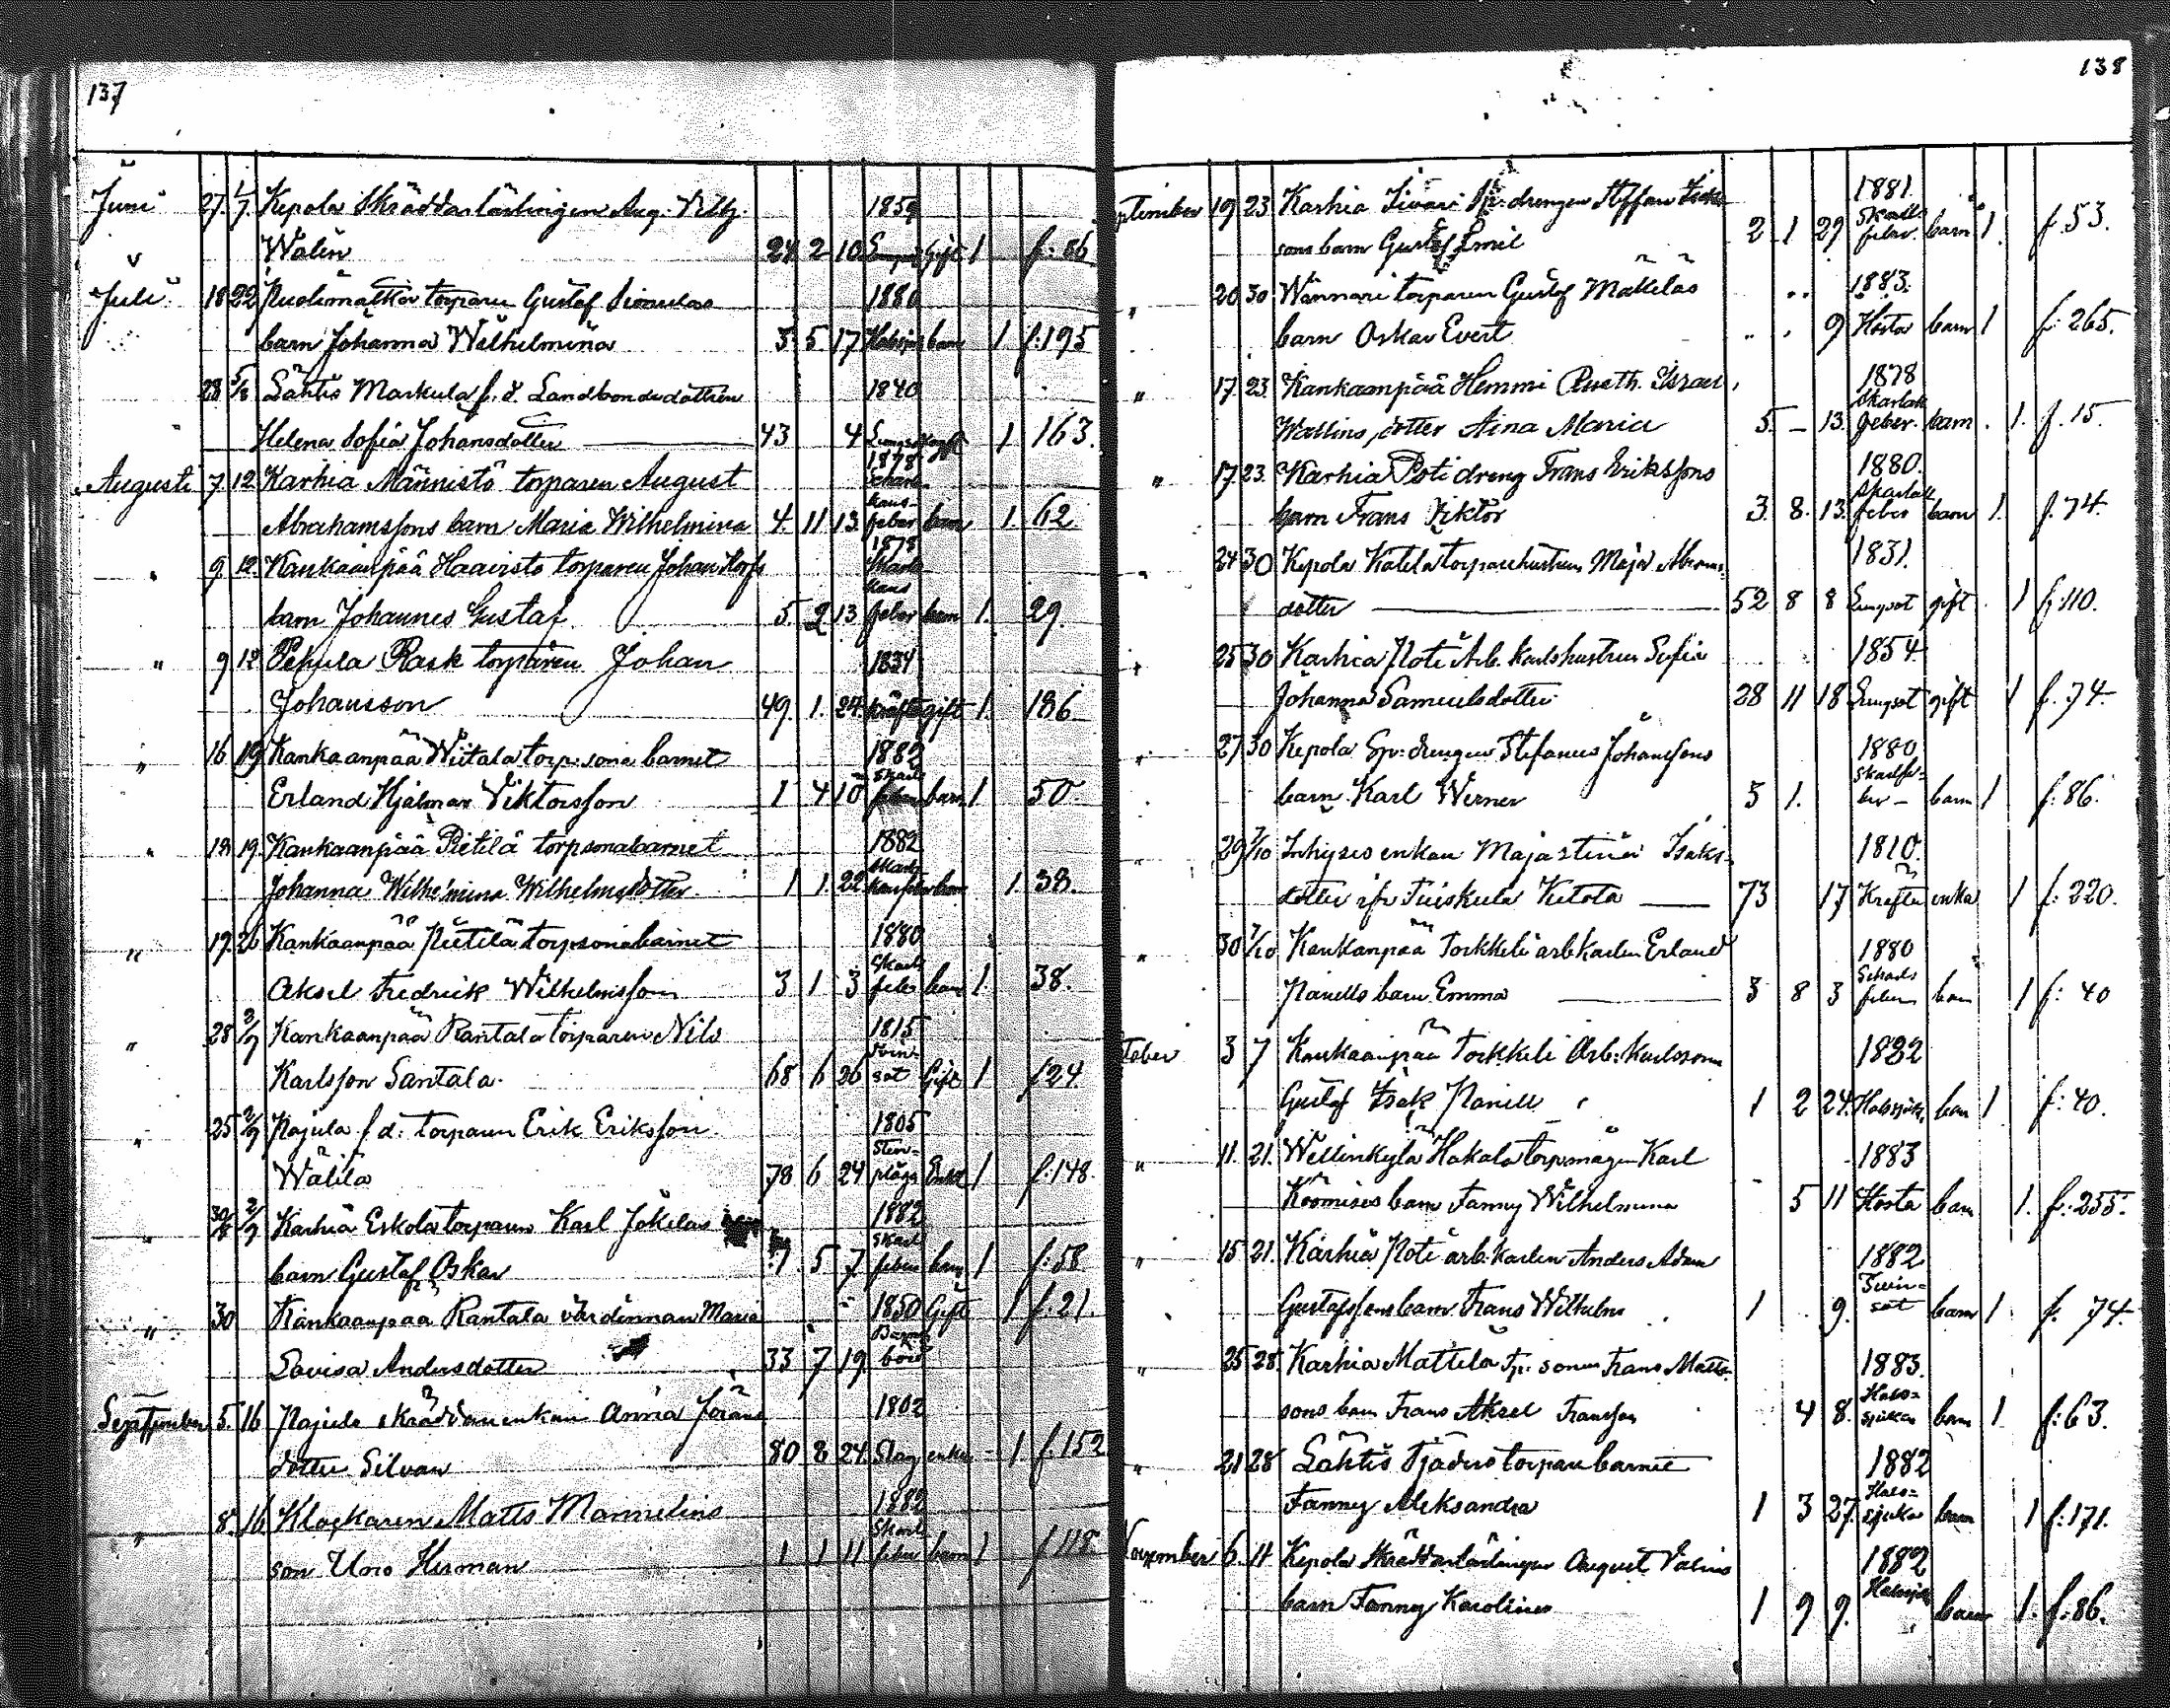 137
Juni 27. 1/7. Kepola Skräddarlärlingen Aug. Vilh. 1859
Walin 24 2 10 Lungsot Gift 1 f: 86
Juli 18 22 torparen Gustaf 1880
barn Johanna Wilhelmina 3 5 17 Halssjuk barn 1 f: 195
28 5/8 Lähtis Markula f. d. Landbondedottren 1840
Helena Sofia Johansdotter 43 4 Lungsot 1 163.
Augusti 7 12 Karhia Männistö torparen August 1878
Abrahamssons barn Maria Wilhelmina 4. 11 13. Scharlakansfeber barn 1. 62
" 9 12. Kankaanpää Haavisto torparen Johan 1878
barn Johannes Gustaf. 5. 2 13. Skarlakansfeber barn 1. 29.
" 9 12 Pehula Rask torparen Johan 1834
Johansson 49. 1. 24. kräfta gift 1. 186
" 16 19 Kankaanpää Wiitala torp. sona barnet 1882
Erland Hjalmar Viktorsson 1 4 10 Skarl. feber barn 1. 50.
" 18 19. Kankaanpää Pietilä torpsonabarnet 1882
Johanna Wilhelmina Wilhelmsdotter 1 1. 22 Skarlakansfeber barn 1. 38.
" 19. 26 Kankaanpää Pietilä torpsonabarnet 1880
Aksel Fredrick Wilhelmsson 3 1 3 Skarl. feber barn 1. 38.
" 28 2/9 Kankaanpää Rantala torparen Nils 1815
Karlsson Santala. 68 6 26 Tvinsot Gift 1 f 24.
" 25 2/9 Pajula f d: torparen Erik Eriksson 1805
Wälilä 78 6 24 Stenplåga Enkl. 1 f: 148.
" 30/8 2/9 Karhia Eskola torparen Karl Jokelas 1882
barn Gustaf Oskar 1 5 7 Skarl feber barn 1 f: 58
" 30 Kankaanpää Rantala värdinnan Maria 1850 Gift 1 f: 21.
Lovisa Andersdotter 33 7 19. Barnbörd
September 5. 16 Pajula skräddarenkan Anna Jörans 1802
dotter Silvan 80 8 24. Slag enka 1. f: 152
" 8. 16 Klockaren Matts Mannelins 1882
son Uno Herman 1 1 11 Skarl feber barn 1 f 118.
138
ptember 19 23. Karhia Sp: drengen Steffan Isaks 1881.
sons barn Gustaf Emil 2 1 29 Skarl. feber. barn 1. f. 53.
" 20 30 Wännäri torparen Gustaf Mäkeläs 1883.
barn Oskar Evert 9 Hosta barn 1 f: 265.
" 17. 23. Kankaanpää Hemmi Rusth. Israel 1878
Wallins dotter Aina Maria 5. – 13. Skarlak feber. barn. 1. f. 15.
" 17. 23. Karhia Poti dreng Frans Erikssons 1880.
barn Frans Viktor 3. 8. 13. Skarlak feber barn 1. f. 74.
" 24 30 Kepola Katila torparehustrun Maja Abrams 1831.
dotter 52 8 8 Lungsot gift 1 f: 110.
" 25 30 Karhia Poti Arb. karlshustrun Sofia 1854.
Johanna Samuelsdotter 28 11 18 Lungsot gift 1 f. 74.
" 27 30 Kepola Sp: drengen Stefanus Johanssons 1880
barn Karl Werner 3 1. Skarlfeber – barn 1 f: 86.
" 29 7/10 Inhyses enkan Maja Stina Isaks- 1810.
dotter ifr Tuiskula Ketola 73 17 Kräfta enka 1 f: 220.
" 30 7/10 Kankaanpää Torkkeli arbkarlen Erland 1880
Panells barn Emma 3 8 3 Scharls feber barn 1 f: 40
tober 3 7 Kankaanpää Torkkeli Arb: karlsson 1882
Gustaf Isak Panell 1 2 24. Halssjuk. barn 1 f: 40.
" 11. 21. Wellinkylä Hakala torpsmågen Karl 1883
barn Fanny Wilhelmina 5 11 Hosta barn 1. f: 255.
" 15 21. Karhia Poti arb: karlen Anders Adam 1882
Gustafssons barn Frans Wilhelm 1 9. Tvinsot barn 1. f. 74.
" 25 28. Karhia Mattila Tp: sonen Frans Matts- 1883.
sons barn Frans Aksel Fransson 4 8. Halssjuka barn 1. f: 63.
" 21 28 Lähtis torpare barnet 1882
Fanny Aleksandra 1 3 27. Halssjuka barn 1 f: 171.
November 6. 11 Kepola Skräddarlärlingen August Valins 1882
barn Fanny Karolina 1 9 9. Halssjuk barn 1. f: 86.